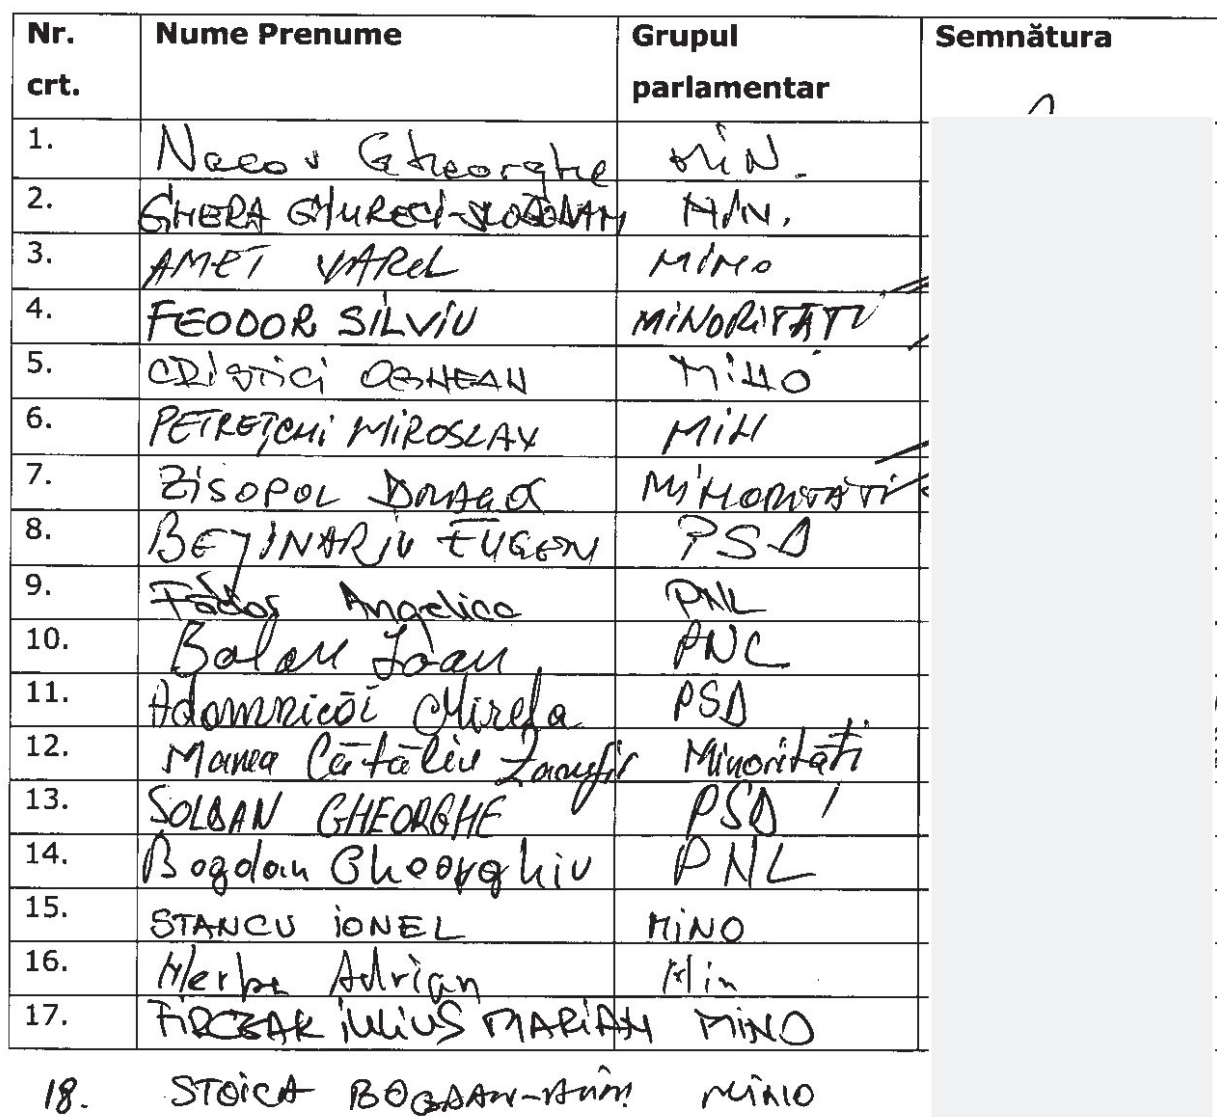 Nr. crt. Nume Prenume Grupul parlamentar Semnătura
1. Nacov Gheorghe MIN.
2. GHERA GIURECI-SLOBODAN MIN.
3. AMET VAREL MINO
4. FEODOR SILVIU MINORITĂȚI
5. CRISTICI OGNEAN MINO
6. PETREȚCHI MIROSLAV MIN
7. ZISOPOL DRAGOȘ MINORITATI
8. BEJINARIU EUGEN PSD
9. Fădor Angelica PNL
10. Balan Ioan PNL
11. Adomnicăi Mirela PSD
12. Manea Cătălin Zamfir Minorități
13. SOLDAN GHEORGHE PSD
14. Bogdan Gheorghiu PNL
15. STANCU IONEL MINO
16. Merka Adrian Min
17. FIRCZAK IULIUS MARIAN MINO
18. STOICA BOGDAN-ALIN MINO